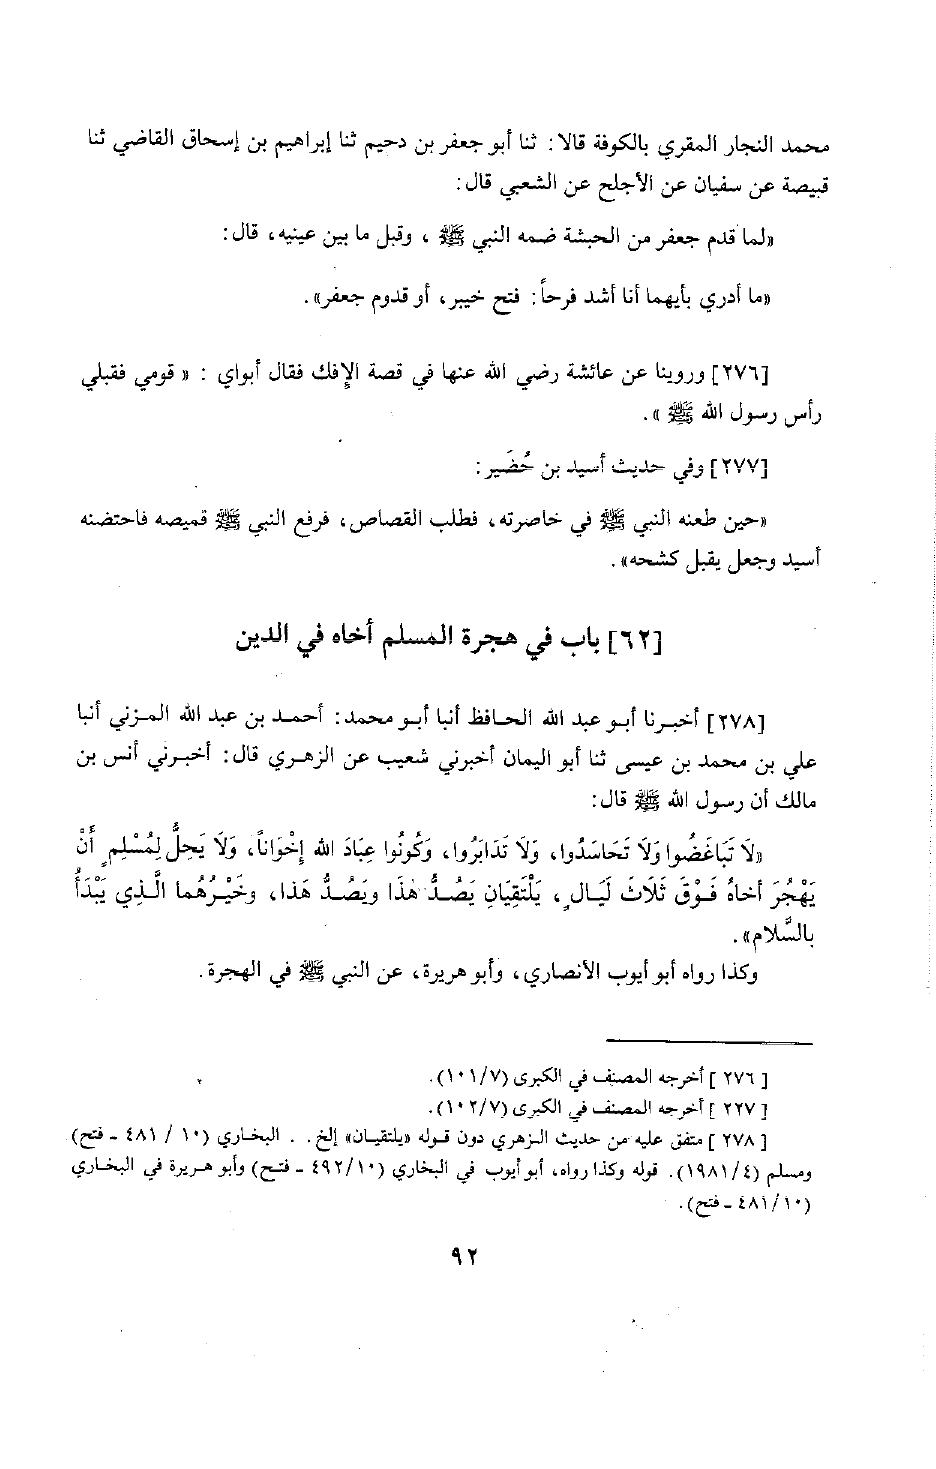 محمد النجار المقري بالكوفة قالا: ثنا أبو جعفر بن دحيم ثنا إبراهيم بن إسحاق القاضي ثنا
قبيصة عن سفيان عن الأجلح عن الشعبي قال:
«لما قدم جعفر من الحبشة ضمه النبي ﷺ ، وقبل ما بين عينيه، قال:
«ما أدري بأيهما أنا أشد فرحاً: فتح خيبر، أو قدوم جعفر».
[٢٧٦] وروينا عن عائشة رضي الله عنها في قصة الإفك فقال أبواي : « قومي فقبلي
رأس رسول الله ﷺ ».
[٢٧٧] وفي حديث أسيد بن حُضَير:
«حين طعنه النبي ﷺ في خاصرته، فطلب القصاص، فرفع النبي ﷺ قميصه فاحتضنه
أسيد وجعل يقبل كشحه».
[٦٢] باب في هجرة المسلم أخاه في الدين
[٢٧٨] أخبرنا أبو عبد الله الحافظ أنبا أبو محمد: أحمد بن عبد الله المزني أنبا
علي بن محمد بن عيسى ثنا أبو اليمان أخبرني شعيب عن الزهري قال: أخبرني أنس بن
مالك أن رسول الله ﷺ قال:
«لَا تَبَاغَضُوا وَلَا تَحَاسَدُوا، وَلَا تَدَابَرُوا، وَكُونُوا عِبَادَ الله إخْوَاناً، وَلَا يَحِلُّ لِمُسْلِمٍ أَنْ
يَهْجُرَ أخاهُ فَوْقَ ثَلَاثَ لَيَالٍ، يَلْتَقِيَانِ يَصُدُّ هٰذا ويَصُدُّ هَذا، وخَيْرُهُما الَّذِي يَبْدَأُ
بالسَّلام».
وكذا رواه أبو أيوب الأنصاري، وأبو هريرة، عن النبي ﷺ في الهجرة.
[ ٢٧٦ ] أخرجه المصنف في الكبرى (١٠١/٧).
[ ٢٢٧ ] أخرجه المصنف في الكبرى (١٠٢/٧).
[ ٢٧٨ ] متفق عليه من حديث الزهري دون قوله «يلتقيان» إلخ. . البخاري (١٠ / ٤٨١ - فتح)
ومسلم (١٩٨١/٤). قوله وكذا رواه، أبو أيوب في البخاري (٤٩٢/١٠ - فتح) وأبو هريرة في البخاري
(٤٨١/١٠ - فتح).
٩٢